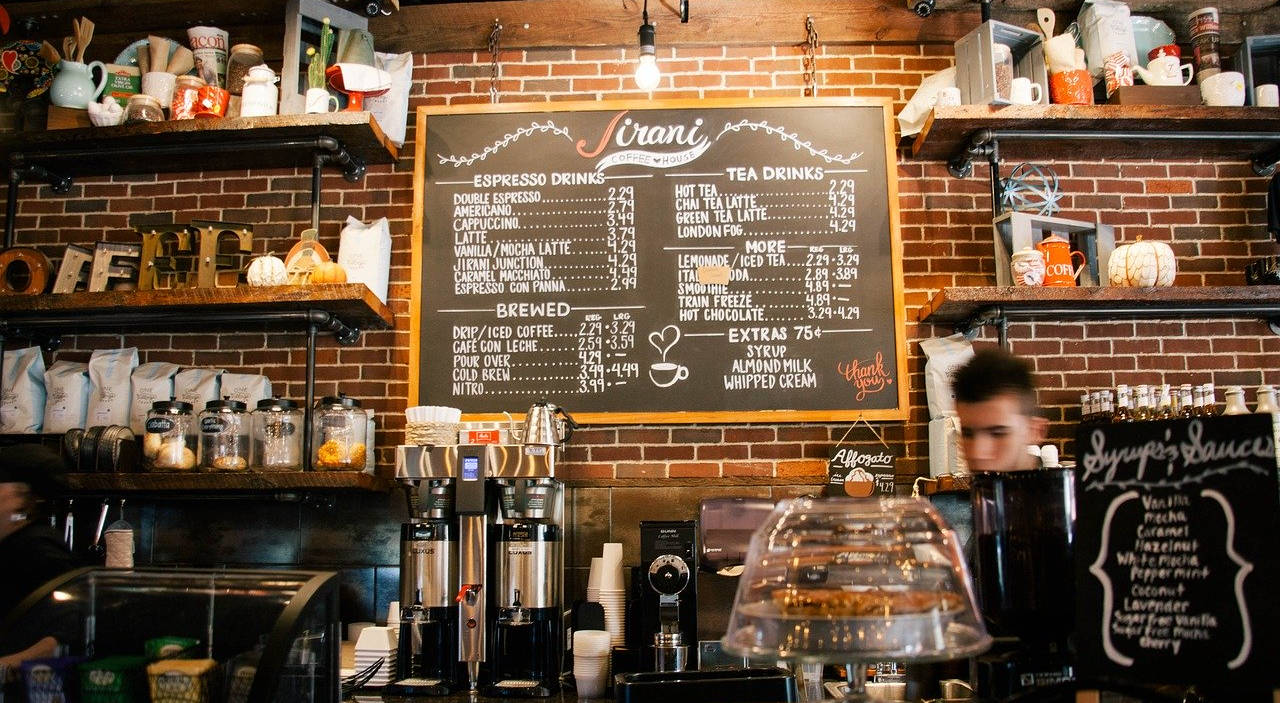 Jirani
COFFEE HOUSE
ESPRESSO DRINKS
DOUBLE ESPRESSO 2.29
AMERICANO 2.79
CAPPUCCINO 3.49
LATTE 3.79
VANILLA/MOCHA LATTE 4.29
JIRANI JUNCTION 4.29
CARAMEL MACCHIATO 4.49
ESPRESSO CON PANNA 2.99
BREWED
REG LRG
DRIP/ICED COFFEE 2.29 • 3.29
CAFÉ CON LECHE 2.59 • 3.59
POUR OVER 4.29 • —
COLD BREW 3.49 • 4.49
NITRO 3.99 • —
TEA DRINKS
HOT TEA 2.29
CHAI TEA LATTE 4.29
GREEN TEA LATTE 4.29
LONDON FOG 4.29
MORE
REG LRG
LEMONADE/ICED TEA 2.29 • 3.29
2.89 • 3.89
SMOOTHIE 4.89 • —
TRAIN FREEZE 4.89 • —
HOT CHOCOLATE 3.29 • 4.29
EXTRAS 75¢
SYRUP
ALMOND MILK
WHIPPED CREAM
thank you
Affogato
4.29
Syrups Sauces
Vanilla
mocha
Caramel
Hazelnut
White mocha
Peppermint
Coconut
Lavender
Sugar free Vanilla
Sugar free Mocha
cherry
COFFEE
bacon
EXTRA VIRGIN
LUXUS
BUNN
Coffee Mill